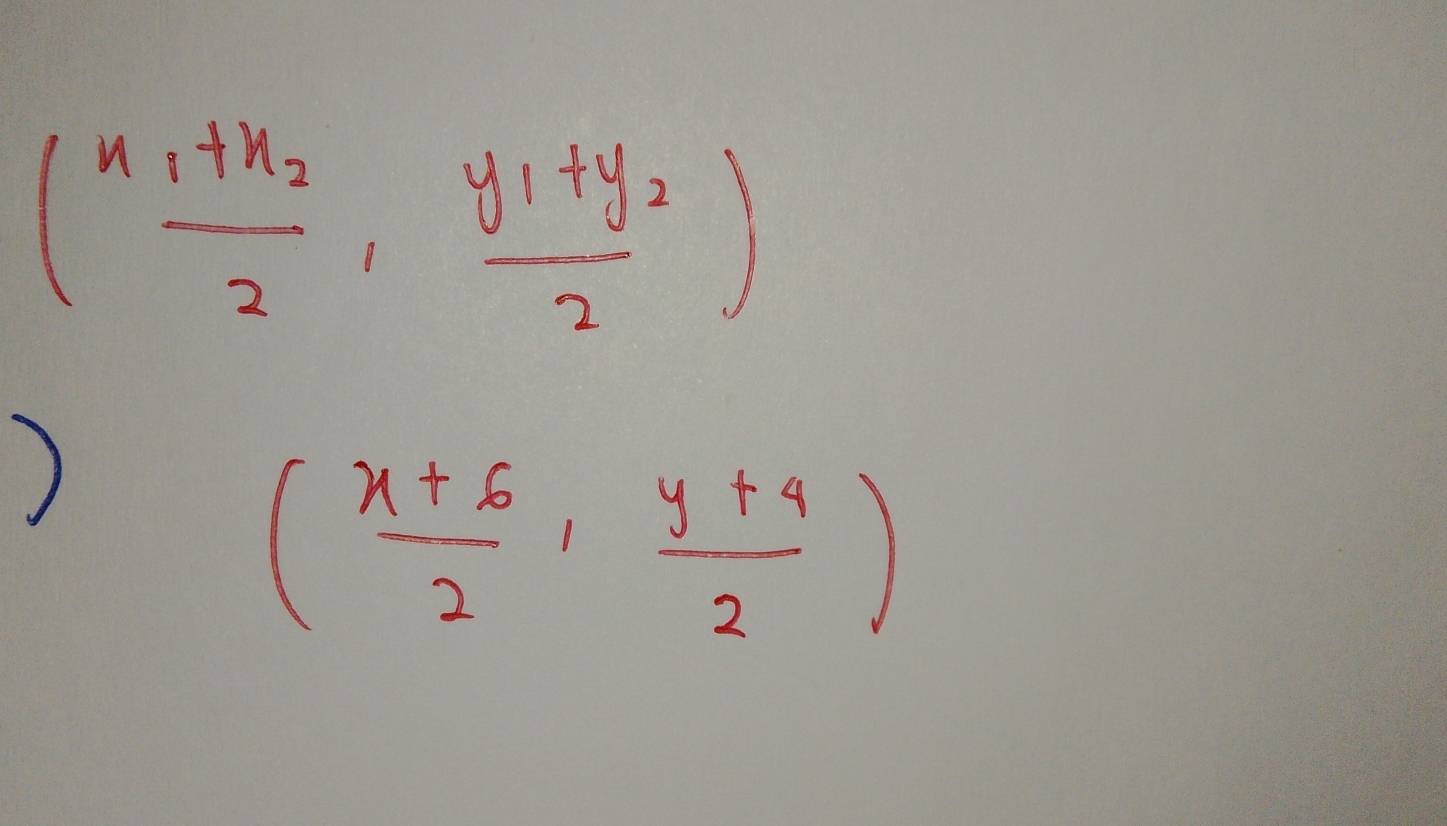 ( x₁+x₂ / 2 , y₁+y₂ / 2 )
) ( x+6 / 2 , y+4 / 2 )